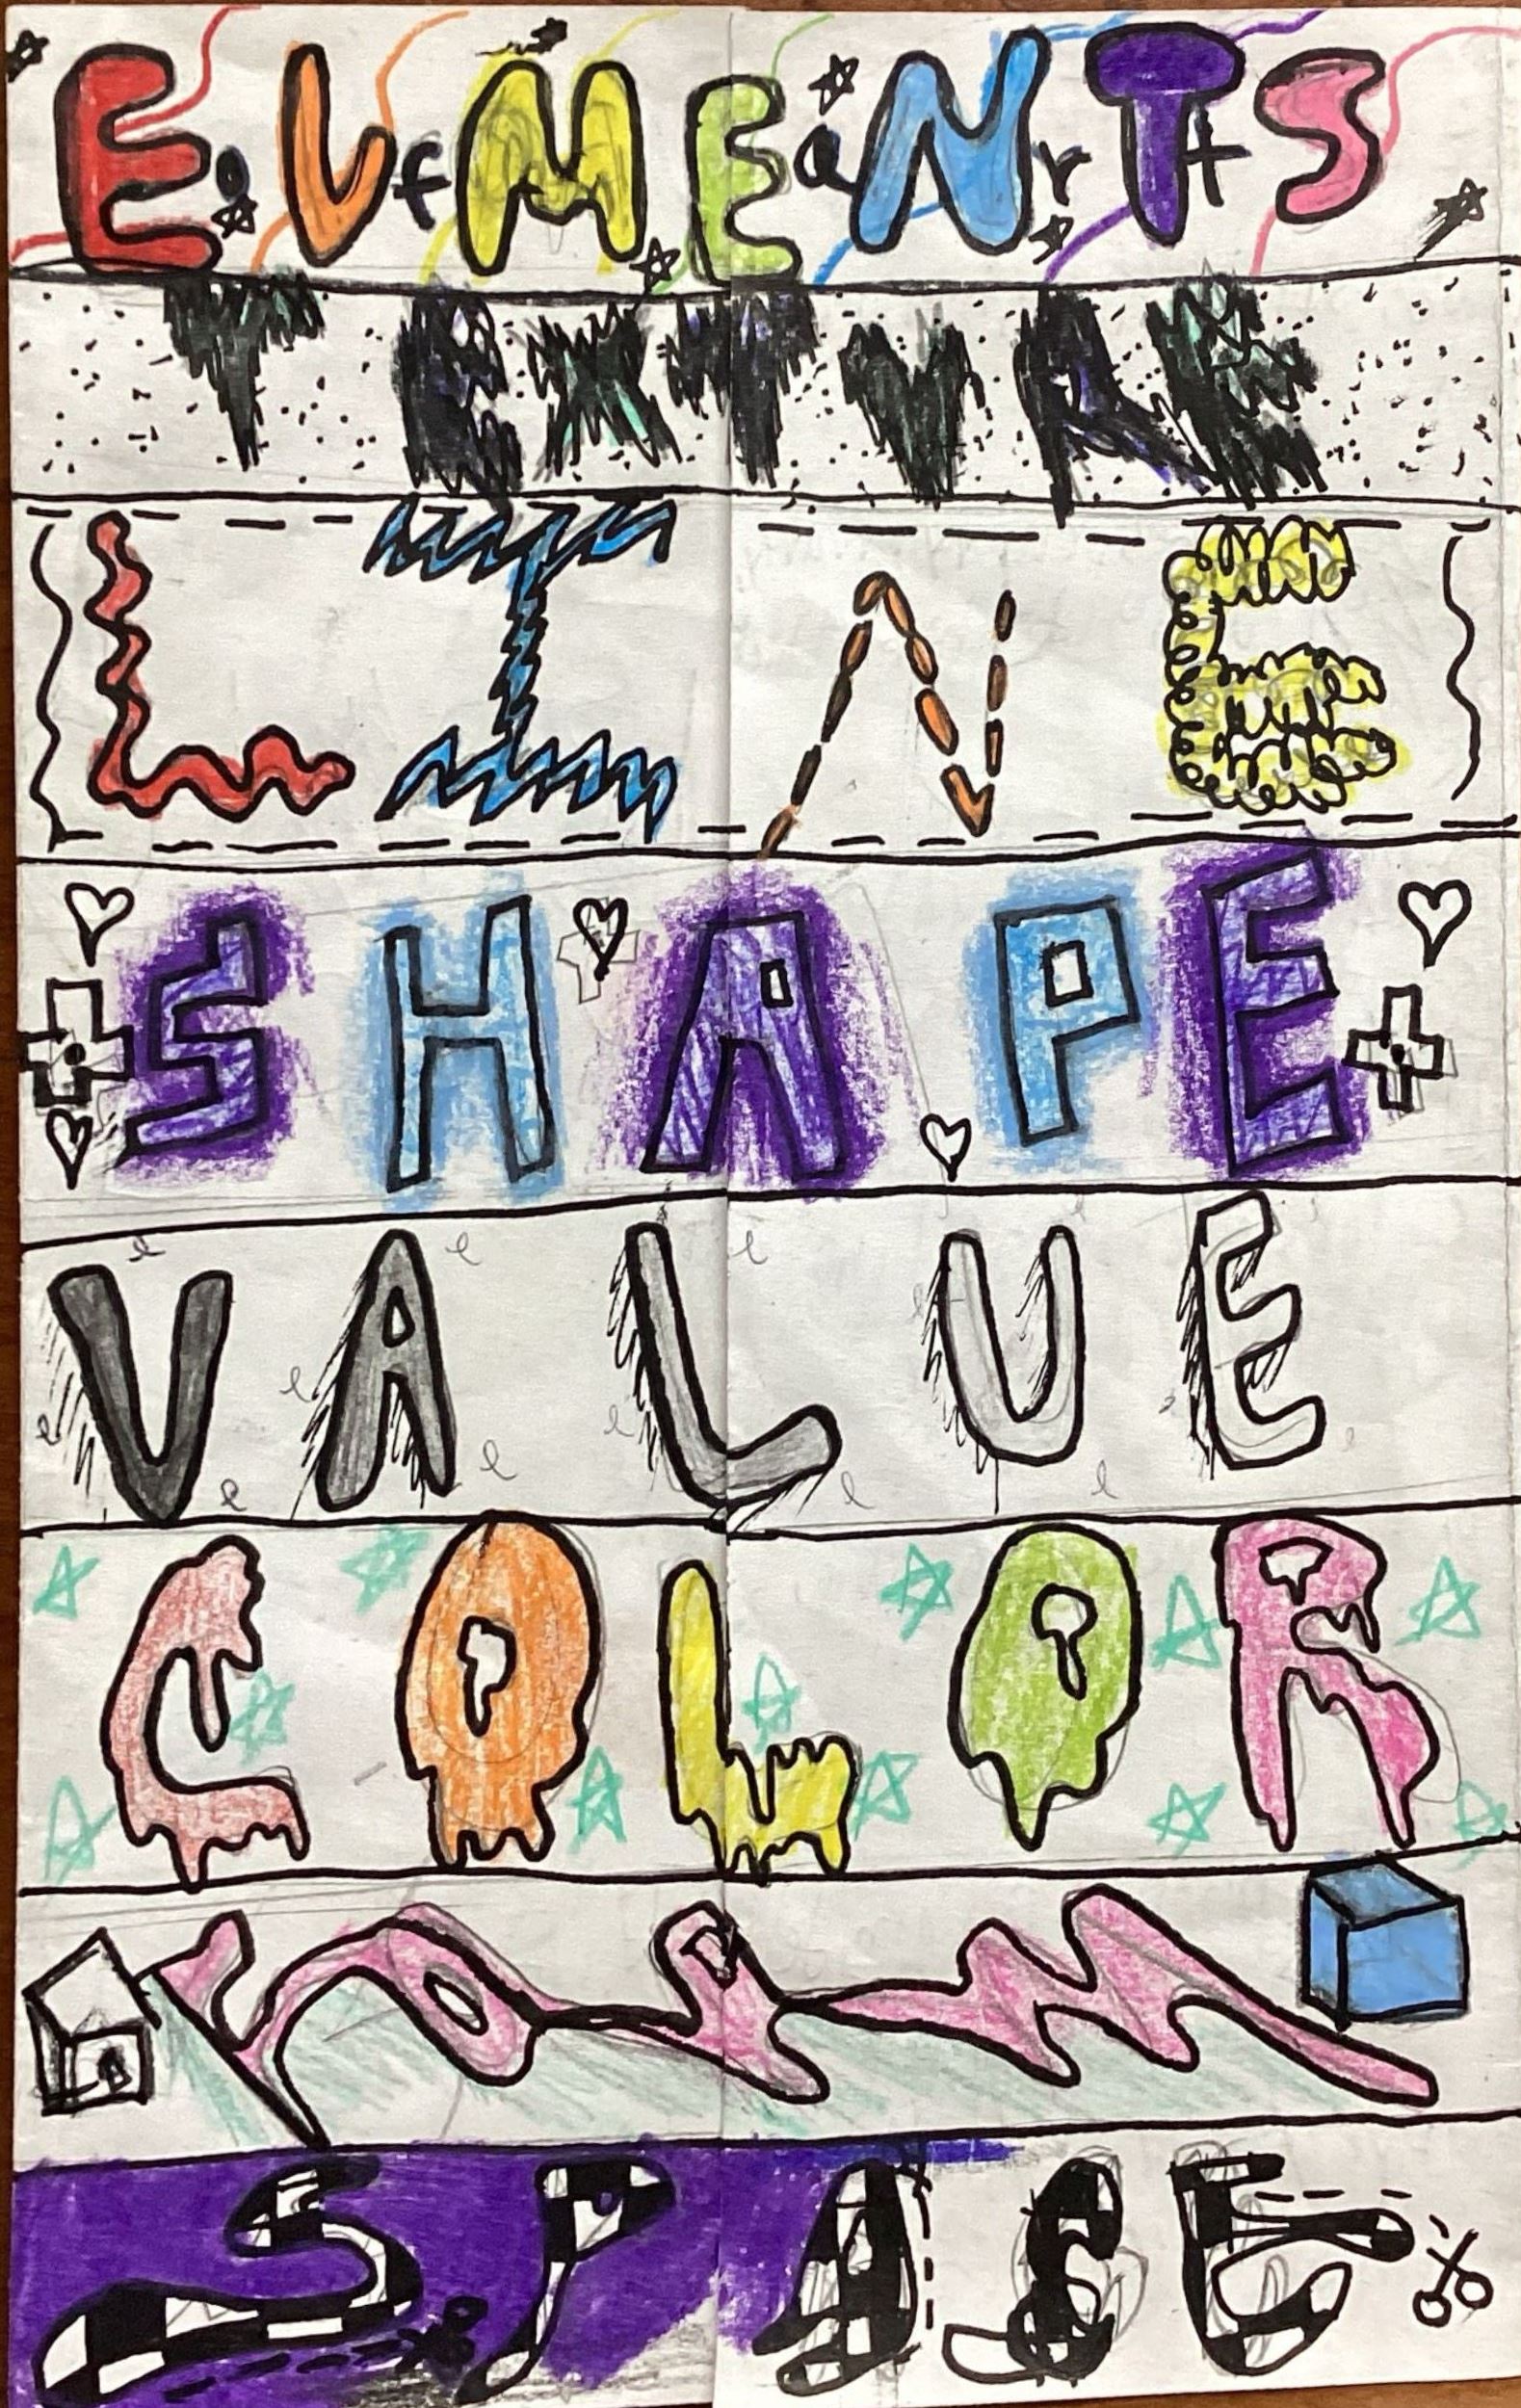 ELMENTS
of art
TEXTURE
LINE
SHAPE
VALUE
COLOR
form
SPACE